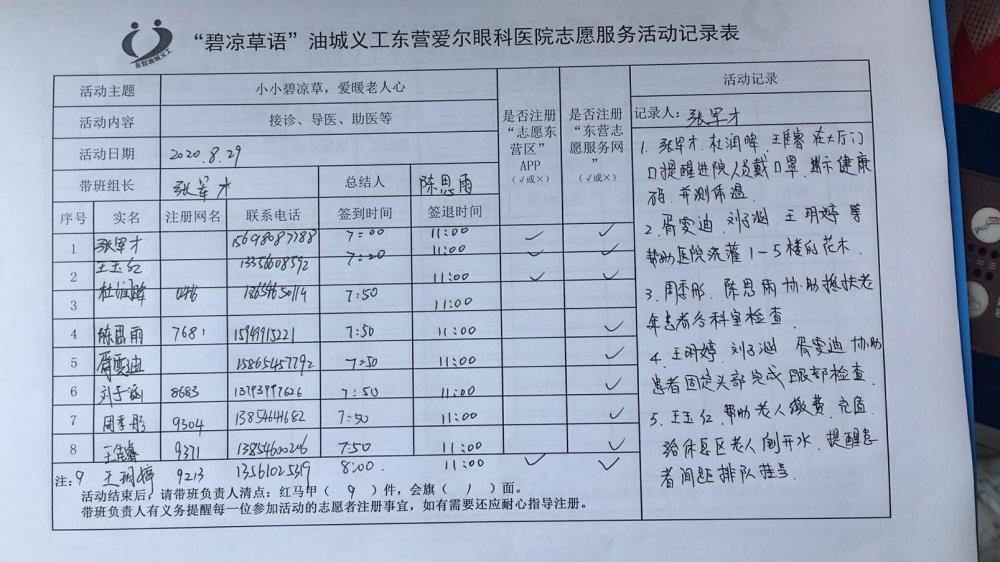 “碧凉草语”油城义工东营爱尔眼科医院志愿服务活动记录表
东营油城义工
活动主题 小小碧凉草，爱暖老人心
活动内容 接诊、导医、助医等
活动日期 2020.8.29
带班组长 张军才 总结人 陈思雨
是否注册“志愿东营区”APP（√或×）
是否注册“东营志愿服务网”（√或×）
序号 实名 注册网名 联系电话 签到时间 签退时间
1 张军才 15698087788 7:00 11:00 ✓ ✓
2 王玉红 13356608592 7:20 11:00 ✓ ✓
3 杜润晖 18654650114 7:50 11:00
4 陈思雨 7681 15949915221 7:50 11:00 ✓
5 胥雯迪 15865457792 7:50 11:00 ✓
6 刘子涵 8683 13793997626 7:50 11:00 ✓
7 周季彤 9304 13854644682 7:50 11:00 ✓
8 王佳睿 9371 13854600246 7:50 11:00 ✓
注：9 王玥婷 9213 13561025319 8:00 11:00 ✓ ✓
活动结束后，请带班负责人清点：红马甲（ 9 ）件，会旗（ 1 ）面。
带班负责人有义务提醒每一位参加活动的志愿者注册事宜，如有需要还应耐心指导注册。
活动记录
记录人：张军才
1. 张军才、杜润晖、王佳睿 在大厅门
口提醒进院人员戴口罩、出示健康
码、并测体温
2. 胥雯迪、刘子涵、王玥婷等
帮助医院浇灌1-5楼的花木
3. 周季彤、陈思雨协助搀扶老
年患者各科室检查
4. 王玥婷、刘子涵、胥雯迪协助
患者固定头部完成眼部检查
5. 王玉红、帮助老人缴费、充值
给休息区老人倒开水、提醒患
者间距排队